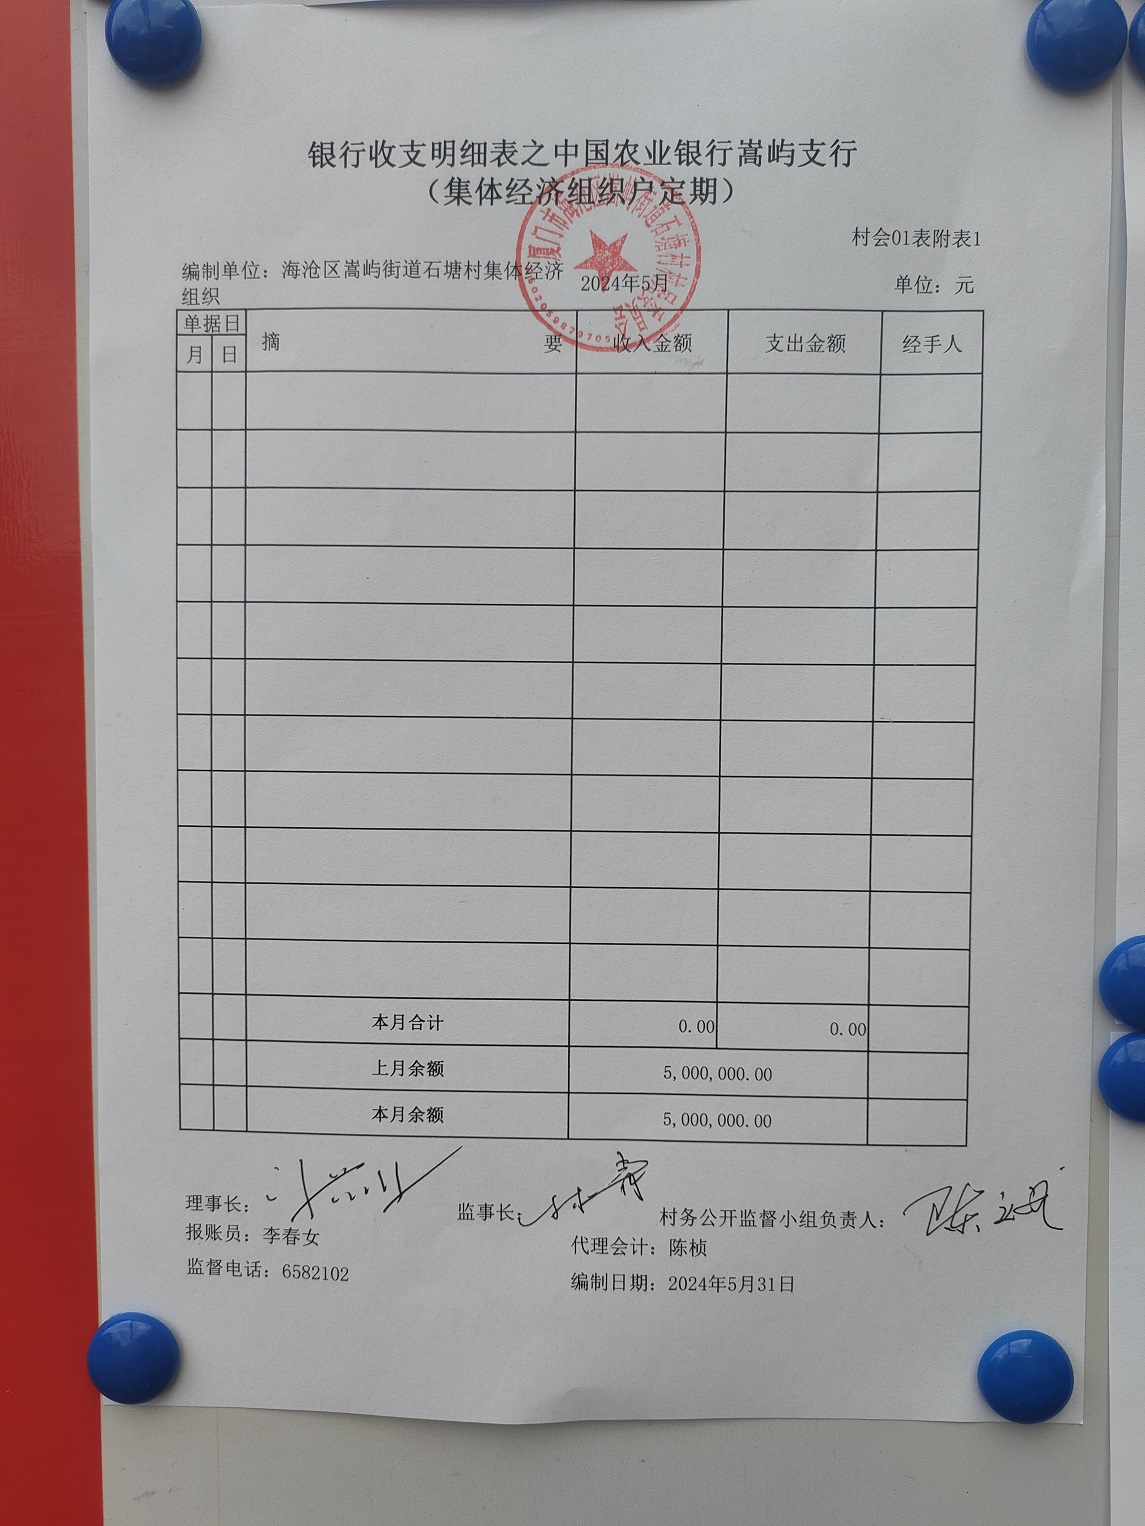 银行收支明细表之中国农业银行嵩屿支行
（集体经济组织户定期）
村会01表附表1
编制单位：海沧区嵩屿街道石塘村集体经济
组织
2024年5月
单位：元
单据日
月 日 摘 要 收入金额 支出金额 经手人
本月合计 0.00 0.00
上月余额 5,000,000.00
本月余额 5,000,000.00
理事长：
监事长：
村务公开监督小组负责人：
报账员：李春女
代理会计：陈桢
监督电话：6582102
编制日期：2024年5月31日